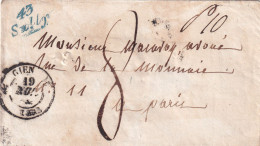 43
Sully
P.10
GIEN
19
Monsieur avoué
rue de la Monnaie
11
a paris